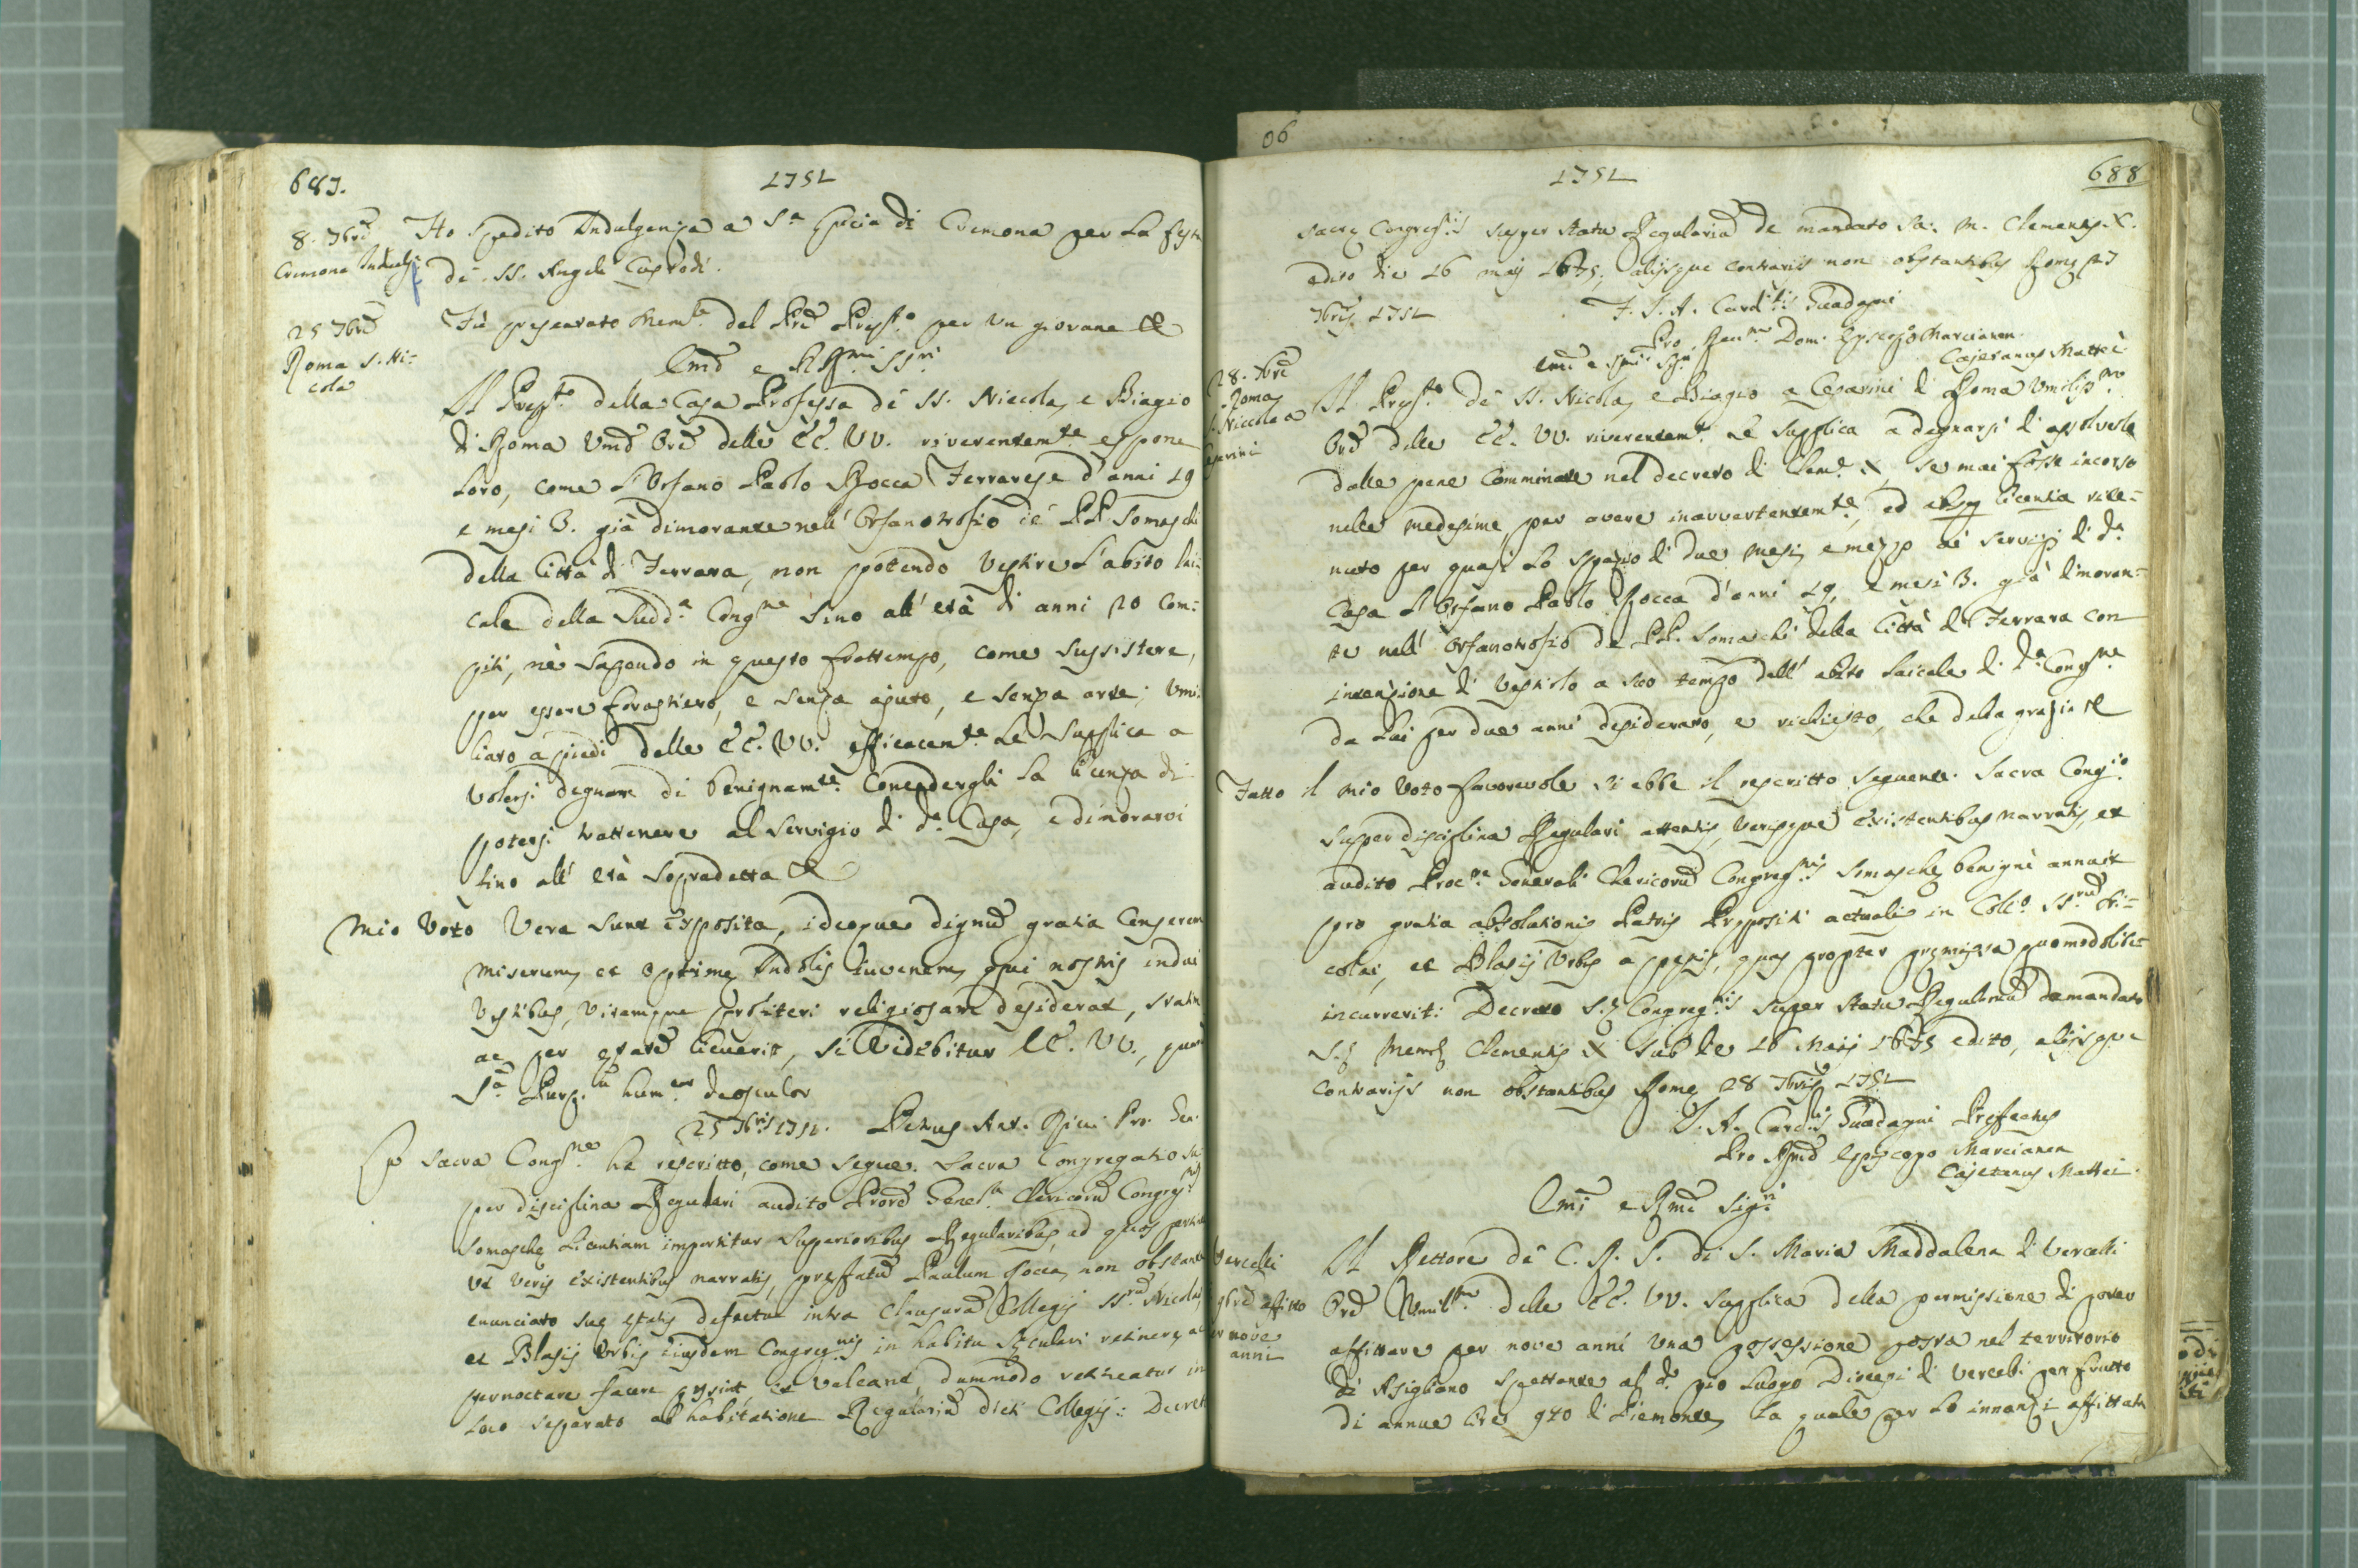 687.
1751
8. 7bre
Cremona Indulg.
Ho spedito Indulgenza a S.a Lucia di Cremona per la festa
de SS. Angeli Custodi.
25 7bre
Roma S. Ni=
cola
Fù presentato mem.le del Pre Prep.to per un giovane &
Emi e RR.mi SS.ri
Il Prep.to della Casa Professa de SS. Niccola, e Biagio
di Roma Umo Ore delle EE. VV. riverentem.te espone
Loro, come l'Orfano Paolo Rocca Ferrarese d'anni 19
e mesi 3. già dimorante nell'Orfanotrofio de' PP. Somaschi
della Città di Ferrara, non potendo vestire l'abito lai=
cale della Sudd.a Cong.ne Sino all'età di anni 20 com=
piti, nè sapendo in questo frattempo, come sussistere,
per essere forastiero, e senza ajuto, e senza arte; Umi=
liato a piedi delle EE. VV. efficacem.te Le Supplica a
volersi degnare di benignam.te Concedergli la licenza di
potersi trattenere al Servigio di d.a Casa, e dimorarvi
sino all'età Sopradetta &
Mio Voto Vera sunt exposita, ideoque dignu gratia Censerem
miserum, et optime Indolis Iuvenem, qui nostris indui
Vestibus, vitamque profiteri religiosam desiderat, statim
ac per etate licuerit, si Videbitur EE. VV., quar
S.a Purp.m hum.e deosculor
25 7bris 1751. Petrus Ant. Ricci Pro. Gen.
La Sacra Cong.ne ha rescritto, come segue. Sacra Congregatio Su=
per disciplina Regulari audito Prore Gener.li Clericoru Congreg.nis
Somasche Licentiam impertitur Superioribus Regularibus, ad quos pertinet
ut veris existentibus narratis, prefatu Paulum Rocca, non obstante
enunciato sue etatis defectu intra Clausura Collegij SS.ru Nicolai,
et Blasij Urbis eiusdem Congreg.nis in habitu Seculari retinere, ac
pernoctare facere possint, et valeant, dummodo retineatur in
loco separato ab habitatione Regulariu dicti Collegij: Decreto
1751
688
sacre Congreg.nis super statu Regulariu de mandato Sa: M. Clementis X.
edito die 16 maij 1675, alijsque contrarijs non obstantibus Rome 27
7bris 1751
F. J. A. Card.lis Guadagni
Pro Rev.mo Dom. Episcopo Marcianen.
Cajetanus Mattei
28. 7bre
Roma
S. Niccola a
Cesarini
Emi e Rmi Sig.ri
Il Prep.to de SS. Nicola, e Biagio a Cesarini di Roma Umiliss.mo
Ore delle EE. VV. riverentem.te Le Supplica a degnarsi di assolverlo
dalle pene Comminate nel decreto di Clem.e X, se mai fosse incorso
nelle medesime, per avere inavvertentem.te, ed absq licentia rite=
nuto per quasi lo spazio di due mesi, e mezzo ai servizj di d.a
Casa l'Orfano Paolo Rocca d'anni 19, e mesi 3. già dimoran=
te nell'Orfanotrofio de PP. Somaschi della Città di Ferrara con
intenzione di vestirlo a suo tempo dell'abito laicale di d.a Cong.ne
da lui per due anni desiderato, e richiesto, che della grazia &
Fatto il mio Voto favorevole si ebbe il rescritto seguente. Sacra Cong.o
Super disciplina Regulari attentis, verisque existentibus narratis, et
audito Proc.re Generali Clericoru Congreg.nis Somasche, benigne annuit
pro gratia absolutionis Patris Prepositi actualis in Coll.o SS.ru Ni=
colai, et Blasij Urbis a penis, quas propter premissa quomodolibet
incurrerit: Decreto S.e Congreg.nis Super Statu Regulariu de mandato
S.e Mem.e Clementis X sub die 16 Maij 1675 edito, alijsque
contrarijs non obstantibus Rome 28 7bris 1751
J. A. Card.lis Guadagni Prefectus
Pro Rmo Episcopo Marcianen
Cajetanus Mattei.
Emi e Rmi Sig.ri
Vercelli
9bre affitto
per nove
anni
Il Rettore de C. R. S. di S. Maria Maddalena di Vercelli
Ore Umil.mo delle EE. VV. Supplica della permissione di poter
affittare per nove anni una possessione posta nel territorio
di Asigliano Spettante al d.o pio Luogo Diocesi di Vercelli per frutto
di annue lire 970 di Piemonte, la quale per lo innanzi affittata